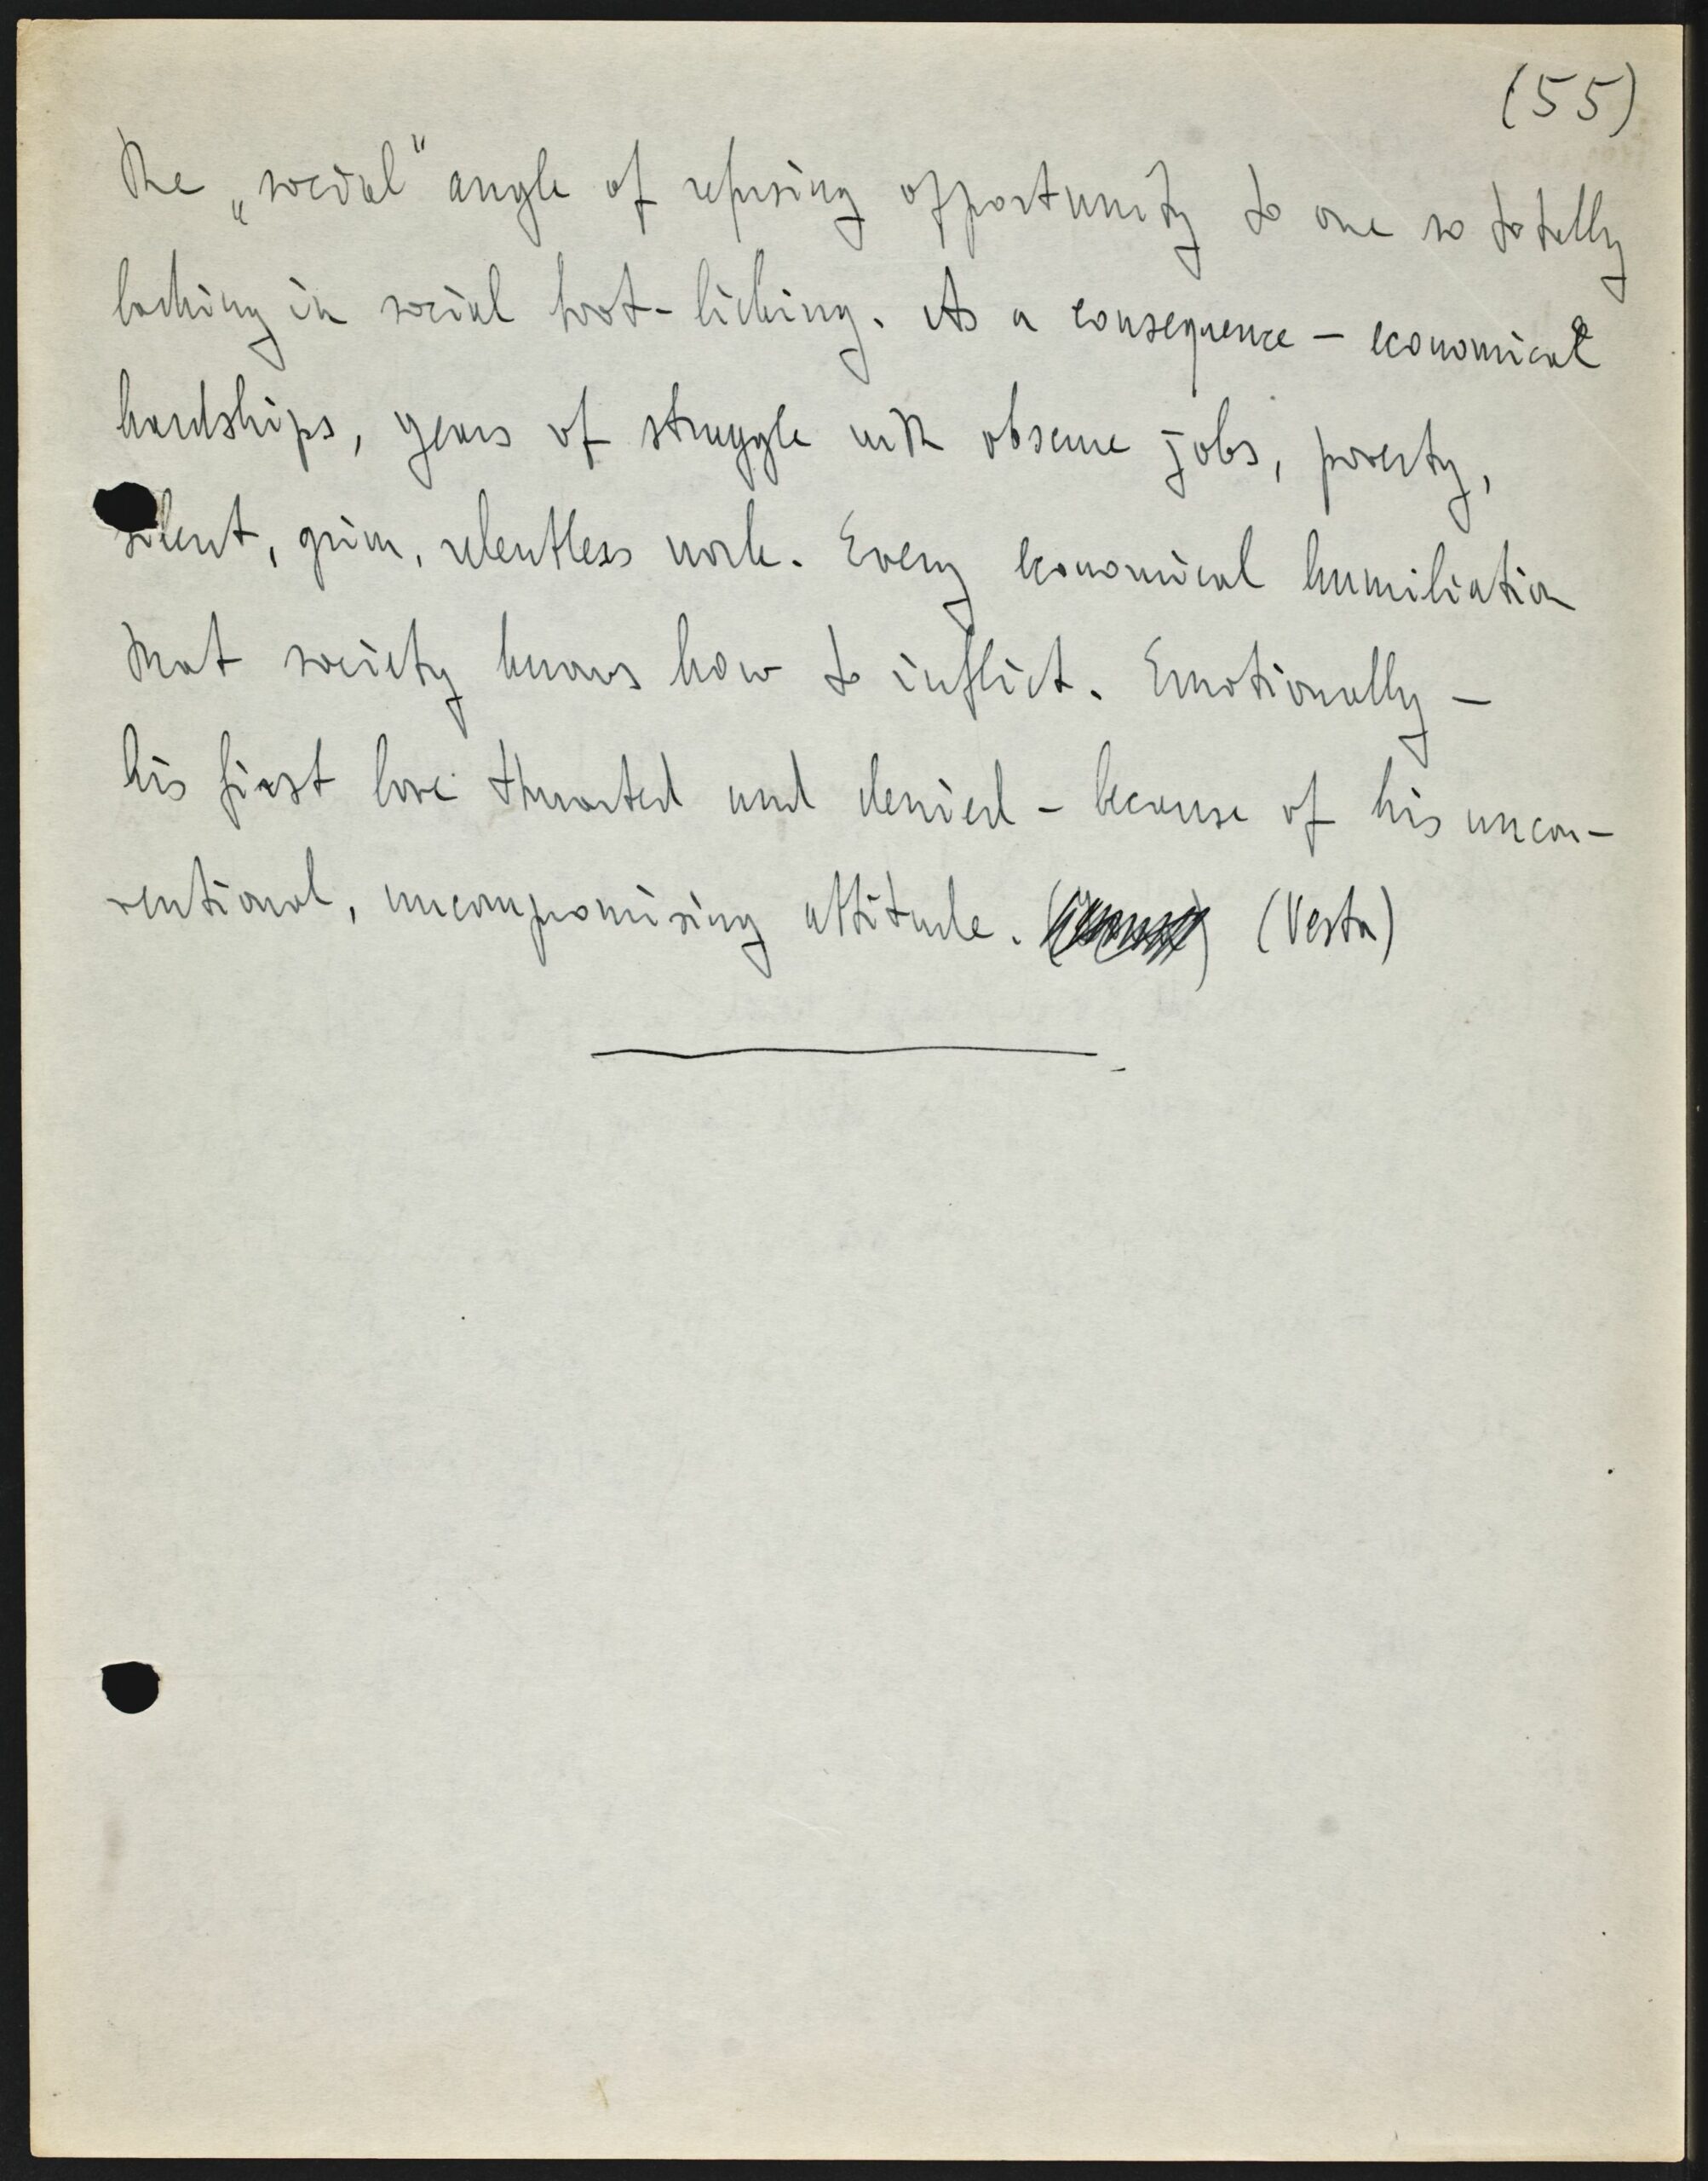 (55)
The „social" angle of refusing opportunity to one so totally
lacking in social boot-licking. As a consequence — economical
hardships, years of struggle with obscure jobs, poverty,
silent, grim, relentless work. Every economical humiliation
that society knows how to inflict. Emotionally —
his first love thwarted and denied — because of his uncon-
ventional, uncompromising attitude. (Vesta)